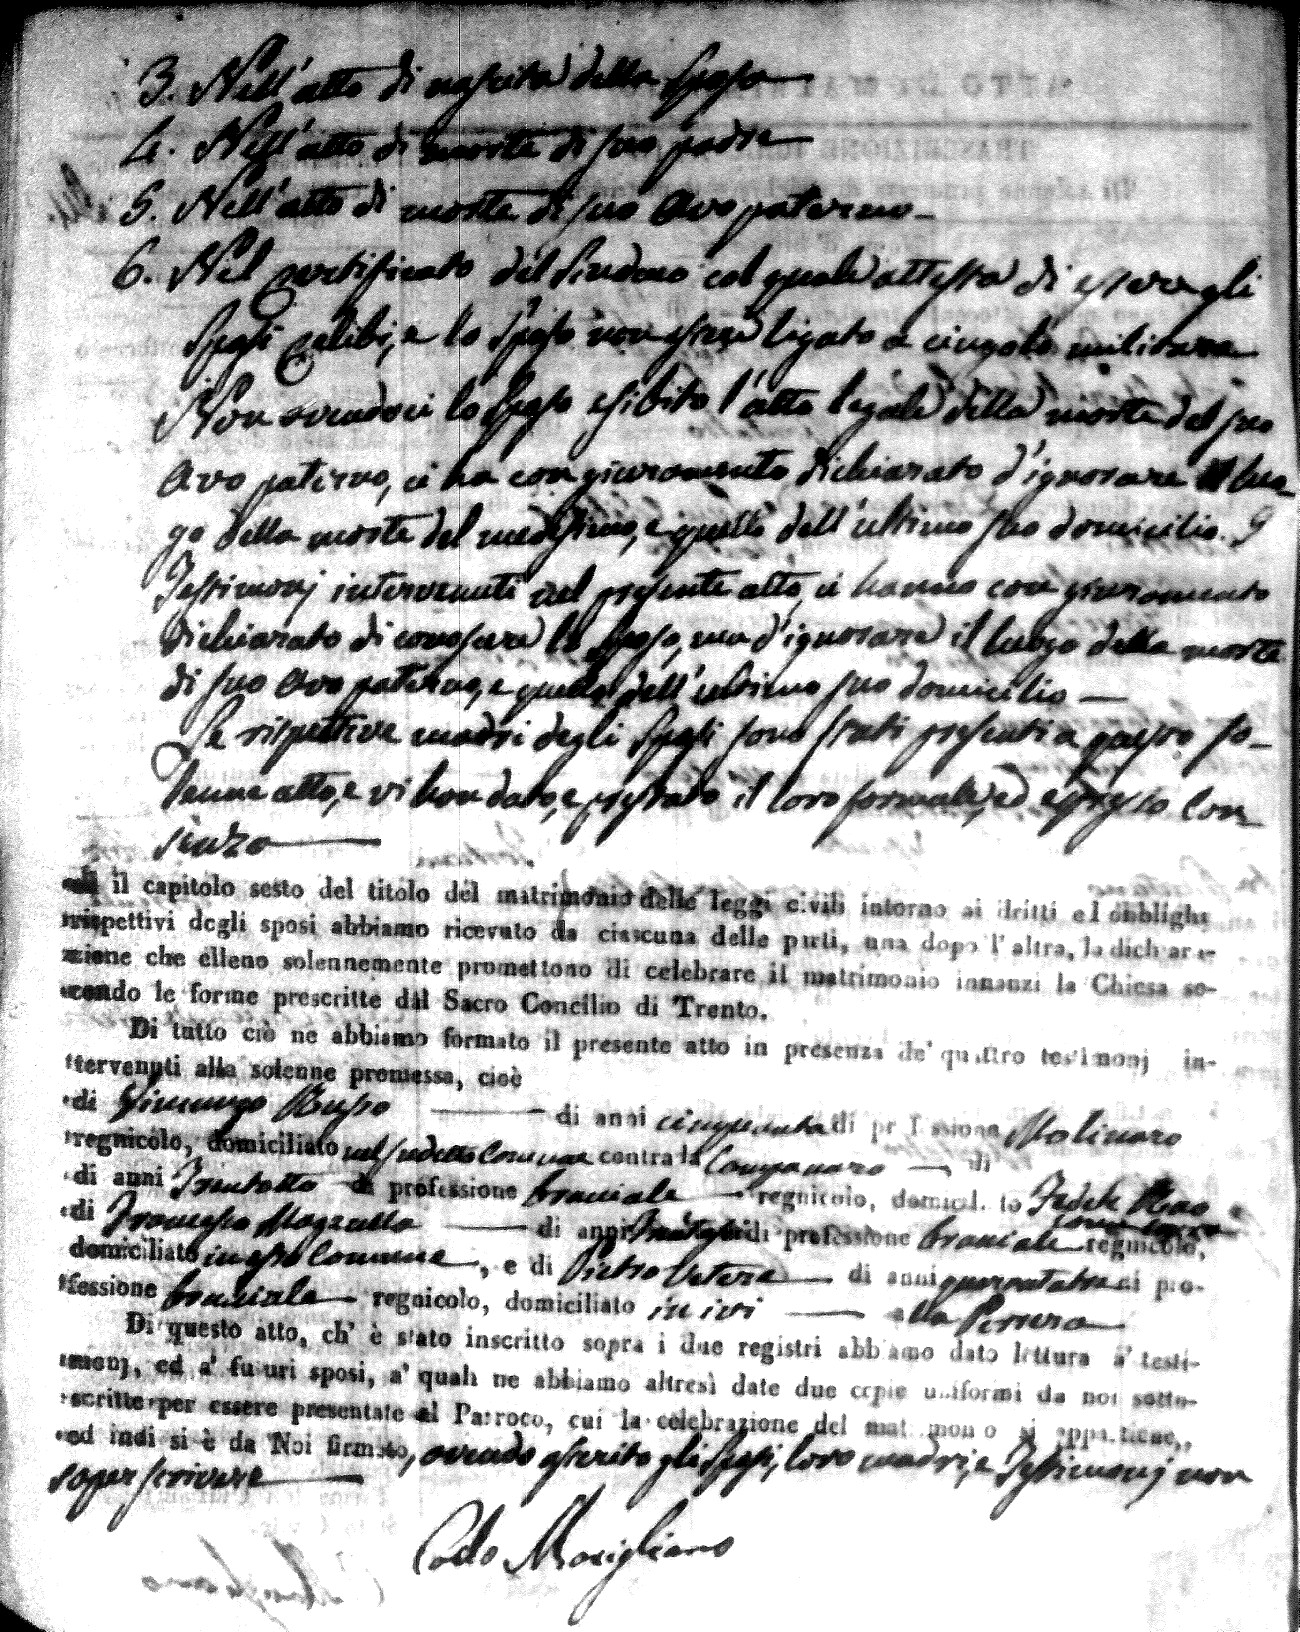 3. Nell'atto di nascita della Sposa
4. Nell'atto di morte di suo padre
5. Nell'atto di morte di suo Avo paterno
6. Nel certificato del Sindaco col quale attesta di essere gli
Sposi celibi, e lo Sposo non essere ligato a cingolo militare
Non avendoci lo Sposo esibito l'atto legale della morte del suo
Avo paterno, ci ha con giuramento dichiarato d'ignorare il luo-
go della morte del medesimo, e quello dell'ultimo suo domicilio. I
Testimonj intervenuti nel presente atto, ci hanno con giuramento
dichiarato di conoscere lo Sposo, ma d'ignorare il luogo della morte
di suo Avo paterno, e quello dell'ultimo suo domicilio
Le rispettive madri degli Sposi sono stati presenti a questo so-
lenne atto, e vi han dato, e prestato il loro formale, ed espresso con
senzo
il capitolo sesto del titolo del matrimonio delle leggi civili intorno ai dritti ed obblighi
rispettivi degli sposi abbiamo ricevuto da ciascuna delle parti, una dopo l'altra, la dichiara-
zione che elleno solennemente promettono di celebrare il matrimonio innanzi la Chiesa se-
condo le forme prescritte dal Sacro Concilio di Trento.
Di tutto ciò ne abbiamo formato il presente atto in presenza de' quattro testimonj in-
tervenuti alla solenne promessa, cioè
di Vincenzo Russo di anni cinquanta di professione Molinaro
regnicolo, domiciliato nel sudetto Comune contra la Campanaro di
di anni Trentotto di professione bracciale regnicolo, domicil. to Fedele Rao
di Francesco Mazzulla di anni di professione bracciale regnicolo,
domiciliato in esso Comune, e di Pietro Vetere di anni quarantatre di pro-
fessione bracciale regnicolo, domiciliato in ivi alla Perrera
Di questo atto, ch' è stato inscritto sopra i due registri abbiamo dato lettura a' testi-
monj, ed a' futuri sposi, a' quali ne abbiamo altresì date due copie uniformi da noi sotto-
scritte per essere presentate al Parroco, cui la celebrazione del matrimonio si appartiene,
ed indi si è da Noi firmato, avendo asserito gli Sposi, loro madri, e Testimonj non
saper scrivere
Marigliano